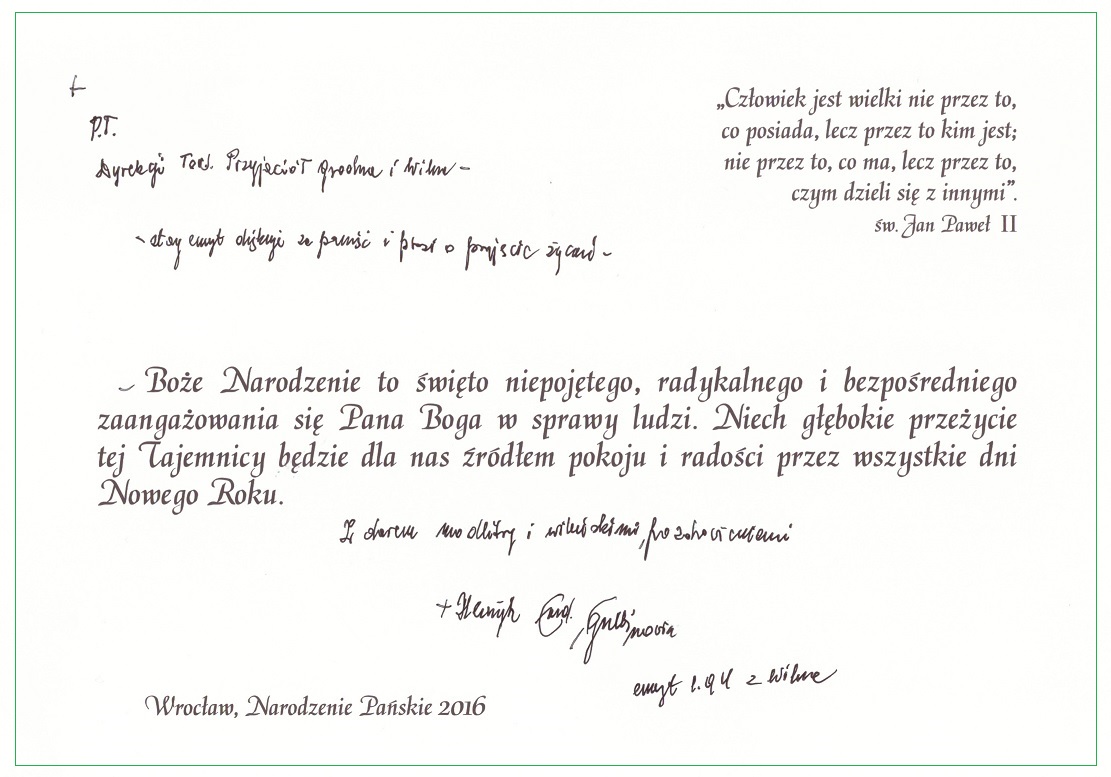 +
P.T.
Dyrekcji Tow. Przyjaciół Grodna i Wilna –
„Człowiek jest wielki nie przez to,
co posiada, lecz przez to kim jest;
nie przez to, co ma, lecz przez to,
czym dzieli się z innymi”.
św. Jan Paweł II
– stary emeryt dziękuję za pamięć i proszę o przyjęcie życzeń –
Boże Narodzenie to święto niepojętego, radykalnego i bezpośredniego
zaangażowania się Pana Boga w sprawy ludzi. Niech głębokie przeżycie
tej Tajemnicy będzie dla nas źródłem pokoju i radości przez wszystkie dni
Nowego Roku.
Z darem modlitwy i wileńskimi pozdrowieniami
+ Henryk Card. Gulbinowicz
emeryt z Wilna
Wrocław, Narodzenie Pańskie 2016